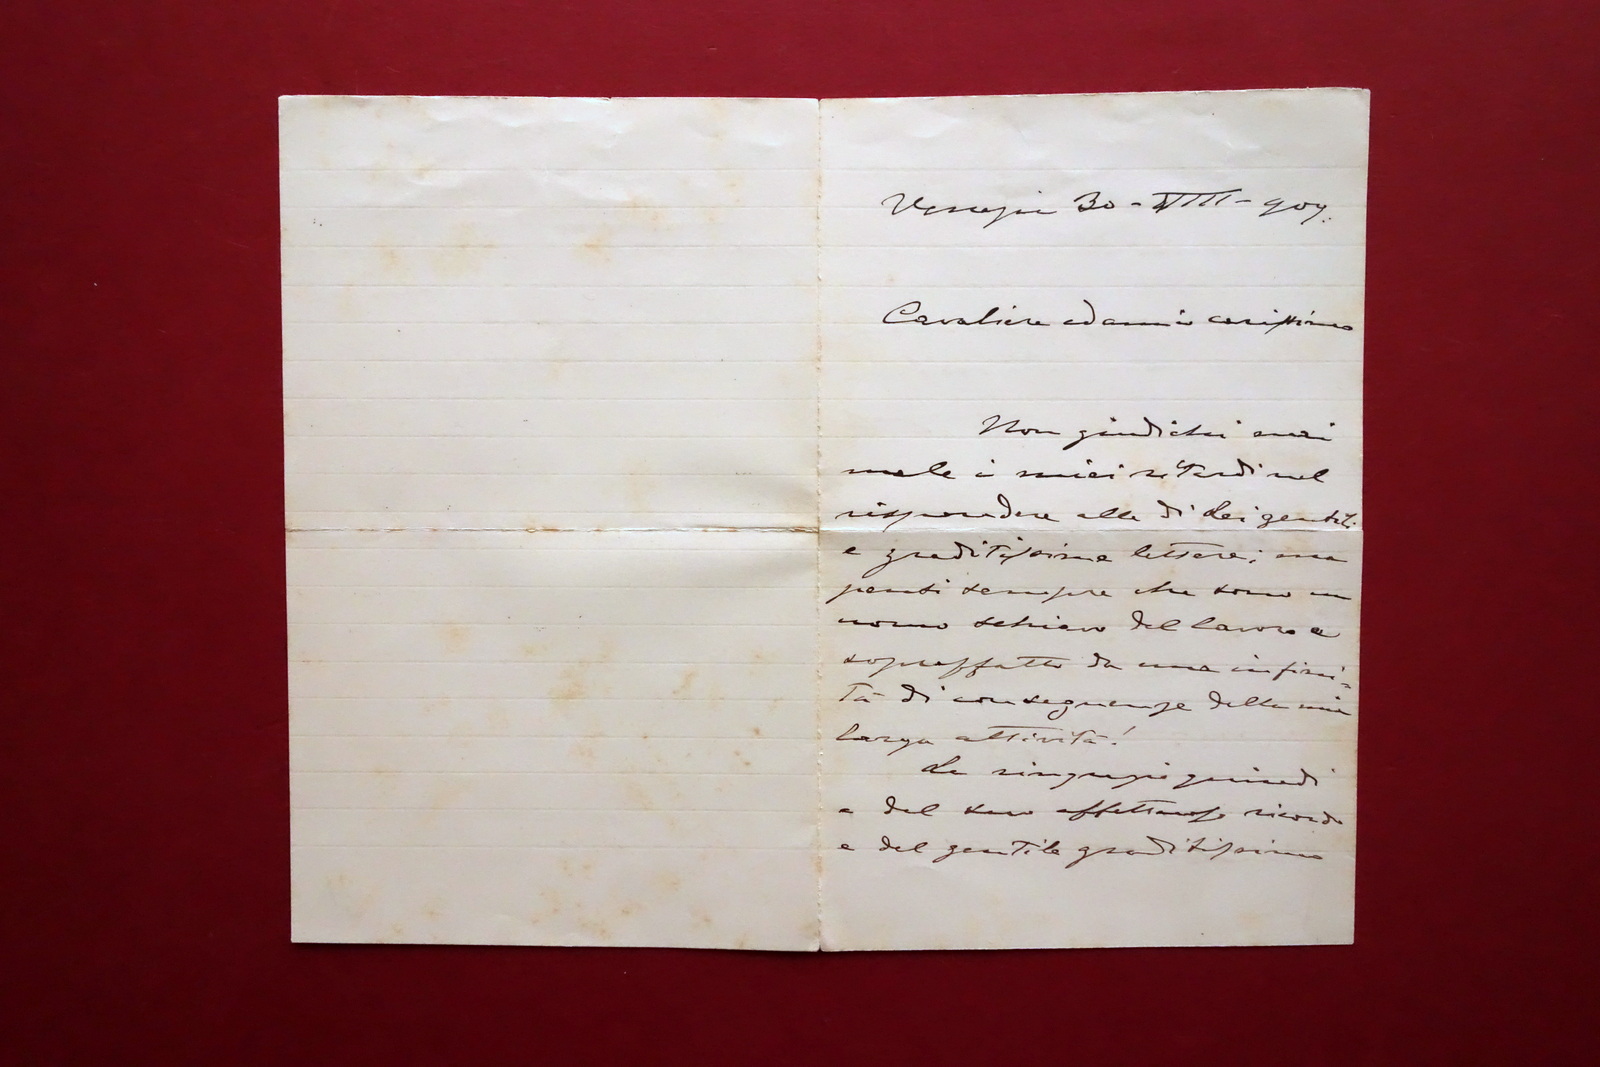 Venezia 30 - VIII - 907.
Cavaliere ed amico carissimo
Non giudichi mai
male i miei ritardi nel
rispondere alle di Lei gentili
e graditissime lettere; ma
pensi sempre che sono un
uomo schiavo del lavoro e
sopraffatto da una infini-
tà di conseguenze della mia
larga attività!
La ringrazio quindi
e del suo affettuoso ricordo
e del gentile graditissimo